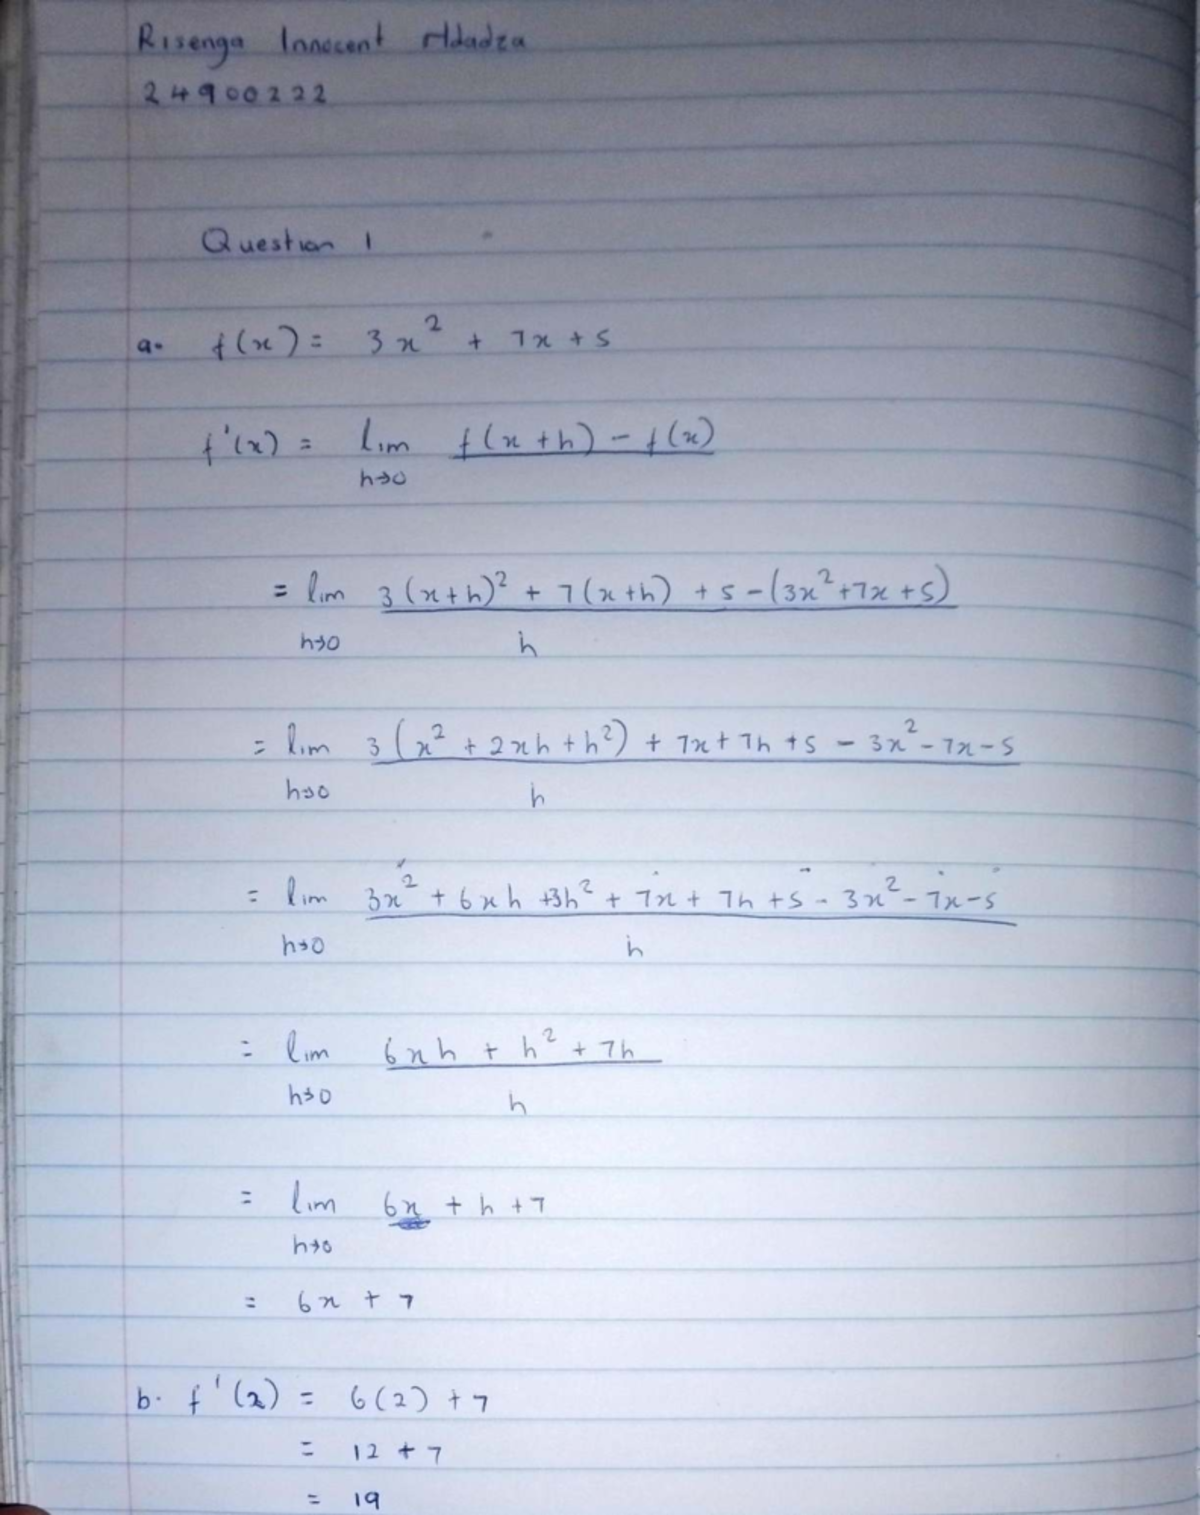 Risenga Innocent
24900222
Question 1
a. f(x) = 3x² + 7x + 5
f'(x) = lim f(x+h) - f(x)
h→0
= lim 3(x+h)² + 7(x+h) + 5 - (3x²+7x+5)
h→0 h
= lim 3(x² + 2xh + h²) + 7x + 7h + 5 - 3x² - 7x - 5
h→0 h
= lim 3x² + 6xh + 3h² + 7x + 7h + 5 - 3x² - 7x - 5
h→0 h
= lim 6xh + h² + 7h
h→0 h
= lim 6x + h + 7
h→0
= 6x + 7
b. f'(2) = 6(2) + 7
= 12 + 7
= 19